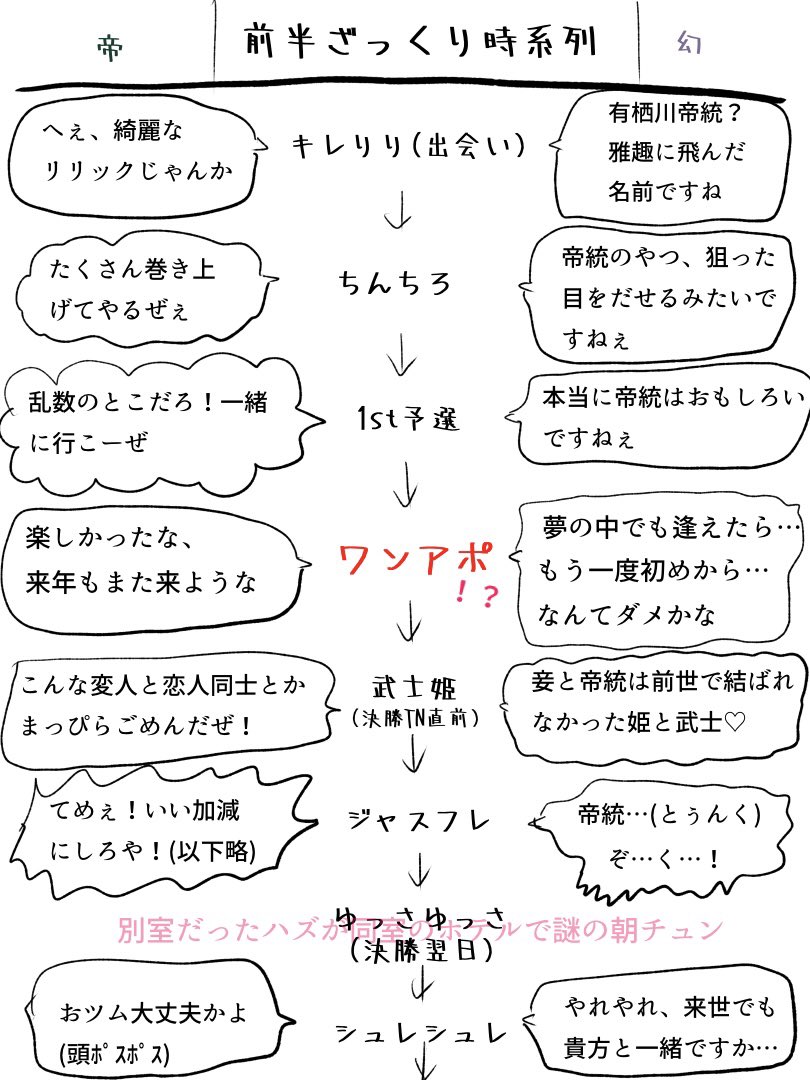 帝
前半ざっくり時系列
幻
へぇ、綺麗な
リリックじゃんか
キレりり(出会い)
有栖川帝統？
雅趣に飛んだ
名前ですね
たくさん巻き上
げてやるぜぇ
ちんちろ
帝統のやつ、狙った
目をだせるみたいで
すねぇ
乱数のとこだろ！一緒
に行こーぜ
1st予選
本当に帝統はおもしろい
ですねぇ
楽しかったな、
来年もまた来ような
ワンアポ
！？
夢の中でも逢えたら…
もう一度初めから…
なんてダメかな
こんな変人と恋人同士とか
まっぴらごめんだぜ！
武士姫
(決勝TN直前)
妾と帝統は前世で結ばれ
なかった姫と武士♡
てめぇ！いい加減
にしろや！(以下略)
ジャスフレ
帝統…(とぅんく)
ぞ…く…！
ゆっさゆっさ
別室だったハズが同室のホテルで謎の朝チュン
(決勝翌日)
おツム大丈夫かよ
(頭ﾎﾟｽﾎﾟｽ)
シュレシュレ
やれやれ、来世でも
貴方と一緒ですか…